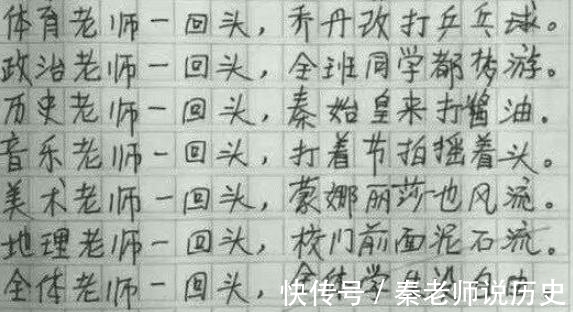 体育老师一回头，乔丹改打乒乓球。
政治老师一回头，全班同学都梦游。
历史老师一回头，秦始皇来打酱油。
音乐老师一回头，打着节拍摇着头。
美术老师一回头，蒙娜丽莎也风流。
地理老师一回头，校门前面泥石流。
全体老师一回头，全体学生没自由
快传号 / 秦老师说历史